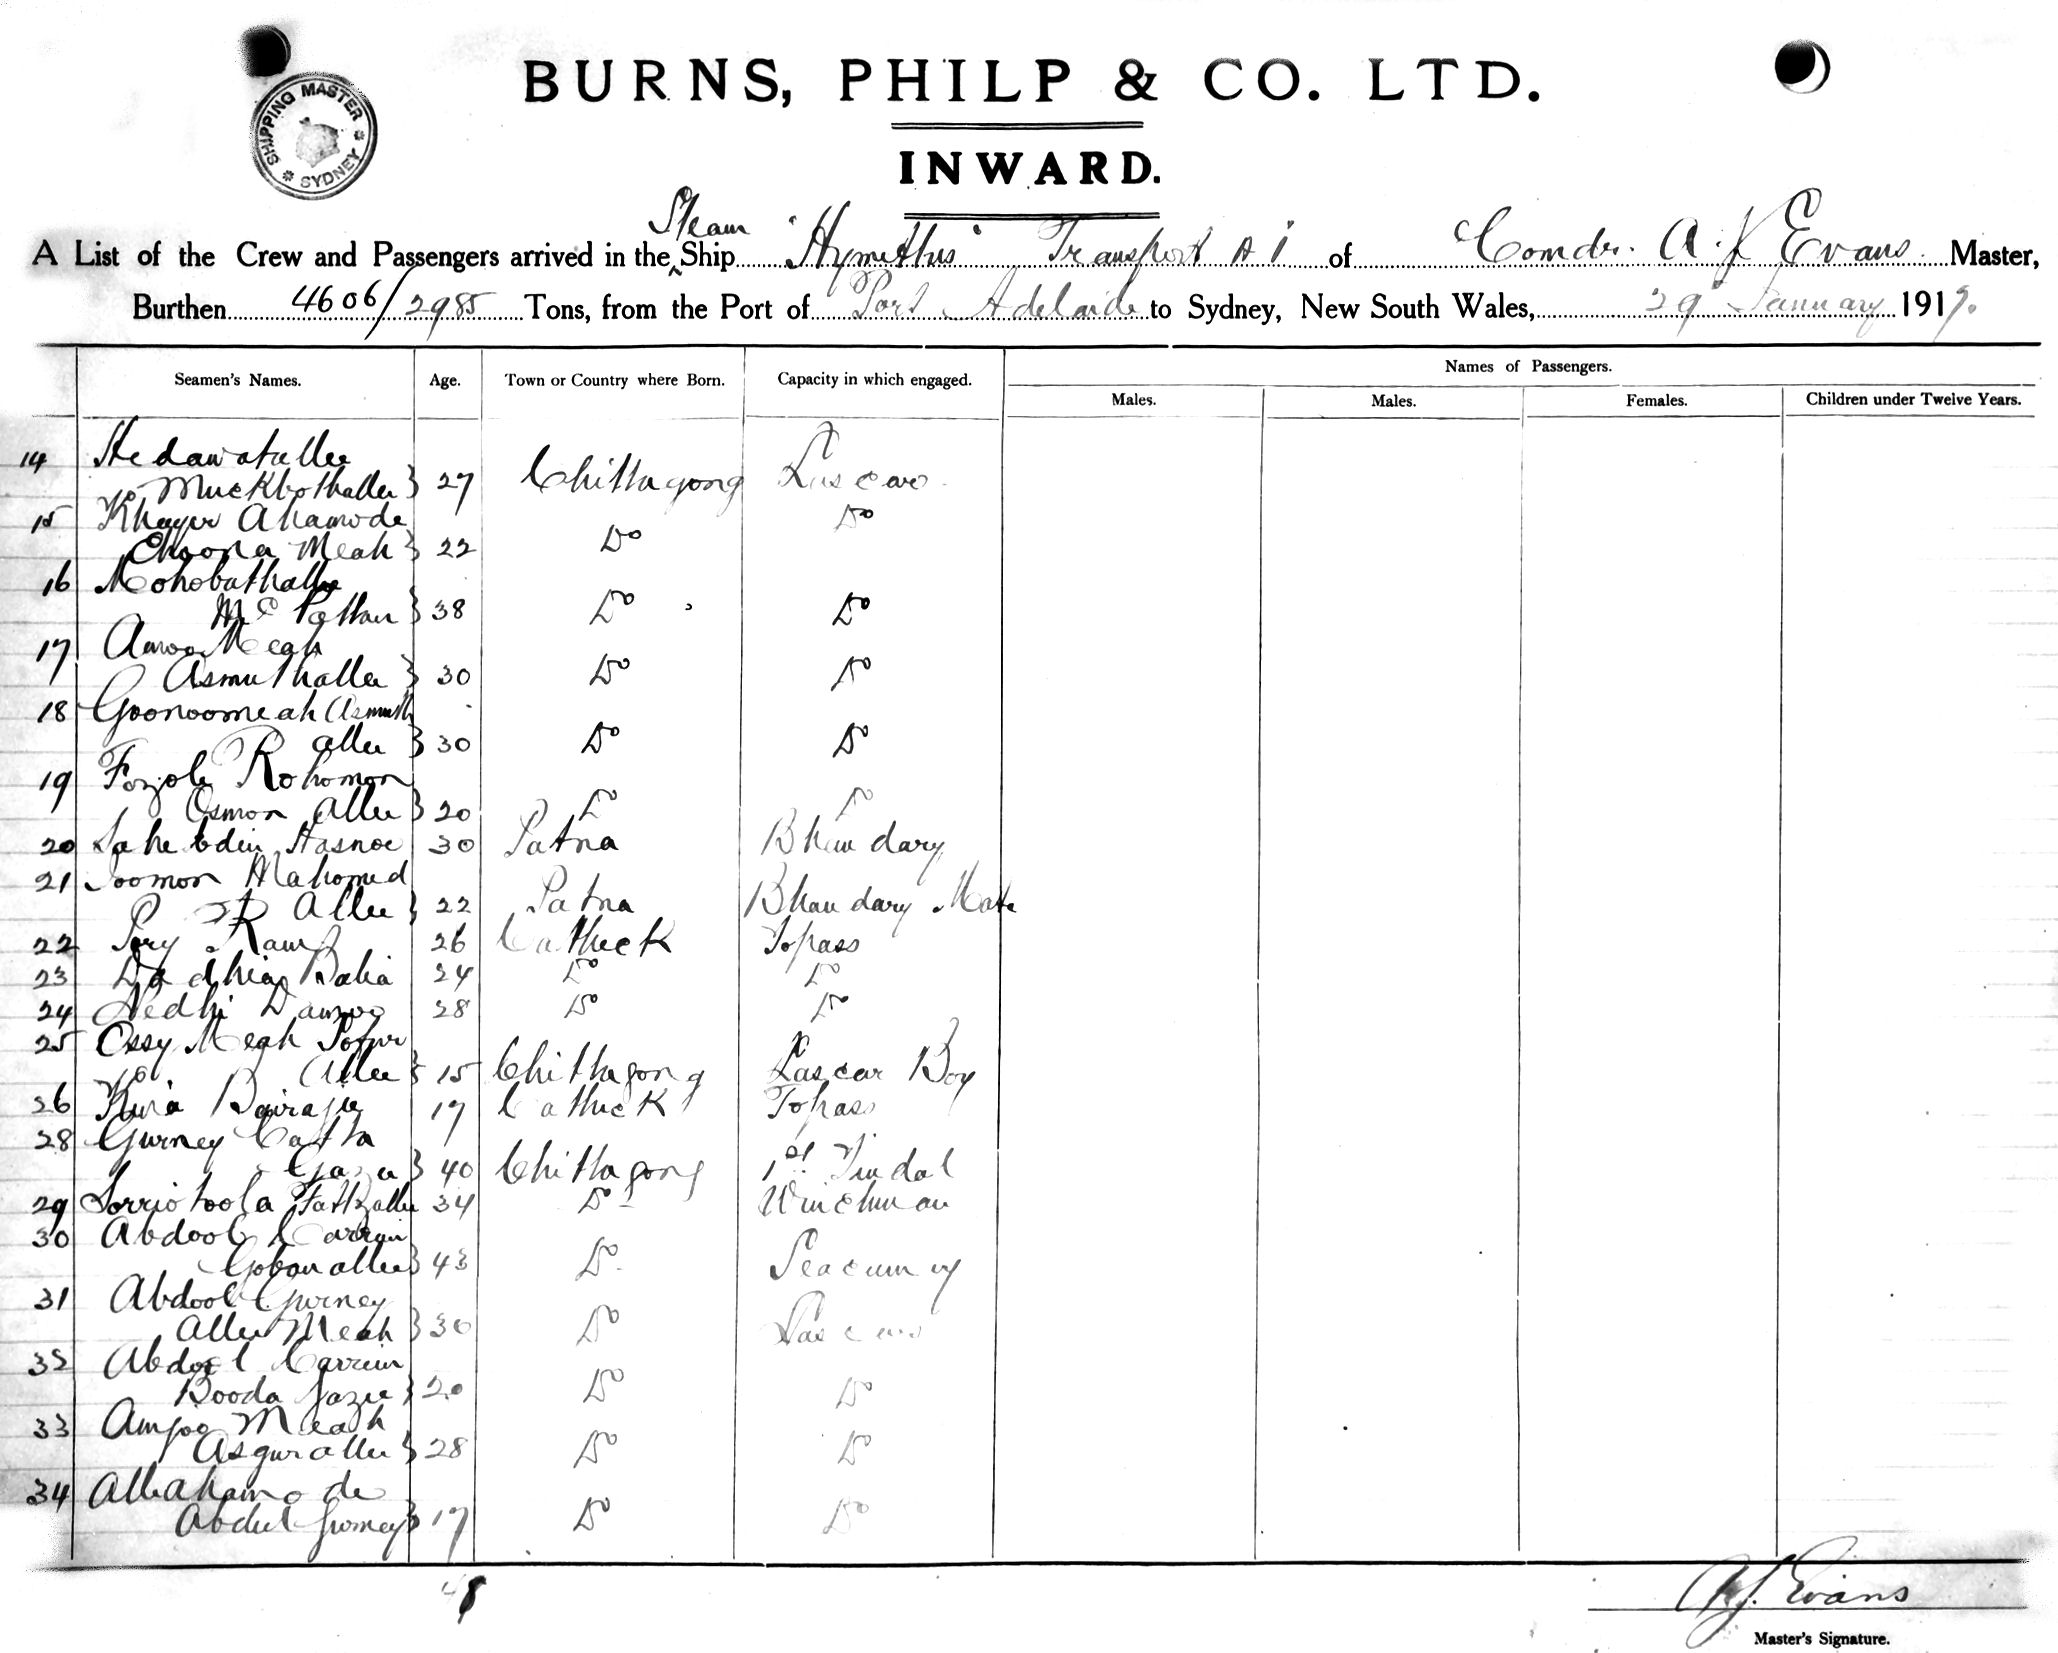 SHIPPING MASTER
SYDNEY
BURNS, PHILP & CO. LTD.
INWARD.
Steam
A List of the Crew and Passengers arrived in the Ship "Hymettus" Transport A 1 of Comdr. A. J. Evans. Master,
Burthen 4606/2985 Tons, from the Port of Port Adelaide to Sydney, New South Wales, 29 January 1919.
Seamen's Names. Age. Town or Country where Born. Capacity in which engaged. Names of Passengers.
Males. Males. Females. Children under Twelve Years.
14 Hedawatallee
Muckbothallee } 27 Chittagong Lascar
15 Khayer Ahamode Do
Choona Meah } 22 Do
16 Mohobathallee
Mc Pattan } 38 Do Do
17 Amoo Meah
Asmuthallee } 30 Do Do
18 Goonoomeah Asmuth
allee } 30 Do Do
19 Fozole Rohomon
Osmon Allee } 20 Do Do
20 Sahebdin Hasnoe 30 Patna Bhandary
21 Joomon Mahomed
Allee } 22 Patna Bhandary Mate
22 Pory Ram 26 Cattack Topass
23 Dadhia Balia 24 Do Do
24 Nedhi Damoo 28 Do Do
25 Ossy Meah
Allee } 15 Chittagong Lascar Boy
26 Kina Bairagie 17 Cattack Topass
28 Gurney Catta
Gazee } 40 Chittagong 1st Tindal
29 Sorriotoola Fatkzallee 34 Do Winchman
30 Abdool Carrim
Gobonallee } 43 Do Seacunny
31 Abdool Gurney
Allee Meah } 30 Do Lascar
32 Abdool Carrim
Booda Gazee } 20 Do Do
33 Amjoo Meah
Asgurallee } 28 Do Do
34 Alleahamode
Abdul Gurney } 17 Do Do
A. J. Evans
Master's Signature.